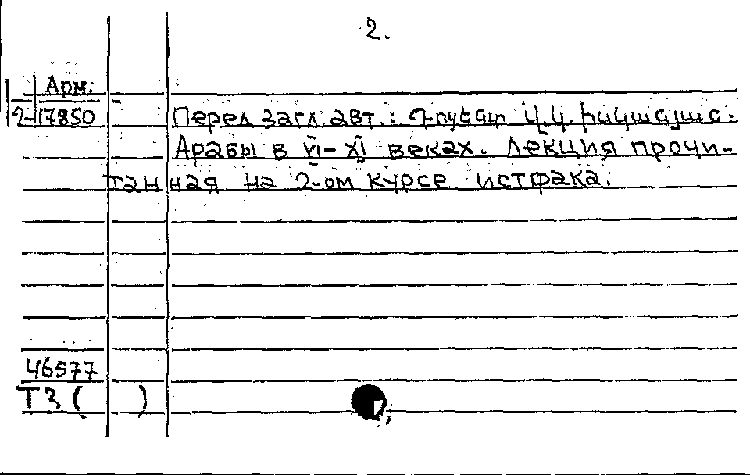 2.
Арм.
2-17850
Перед загл. авт.: Դոցենտ Վ.Կ.
Арабы в VI-XI веках. Лекция прочи-
танная на 2-ом курсе истфака.
46577
ТЗ ( )